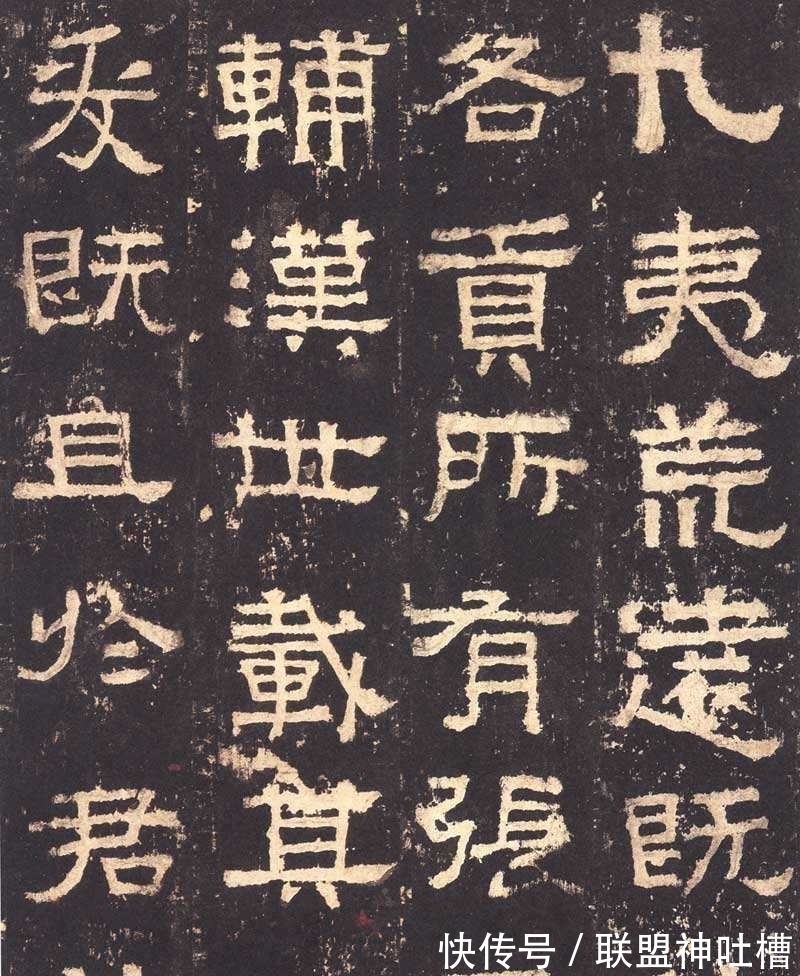 九夷荒遠既
各貢所有張
輔漢世載其
爰既且於君
快传号 / 联盟神吐槽